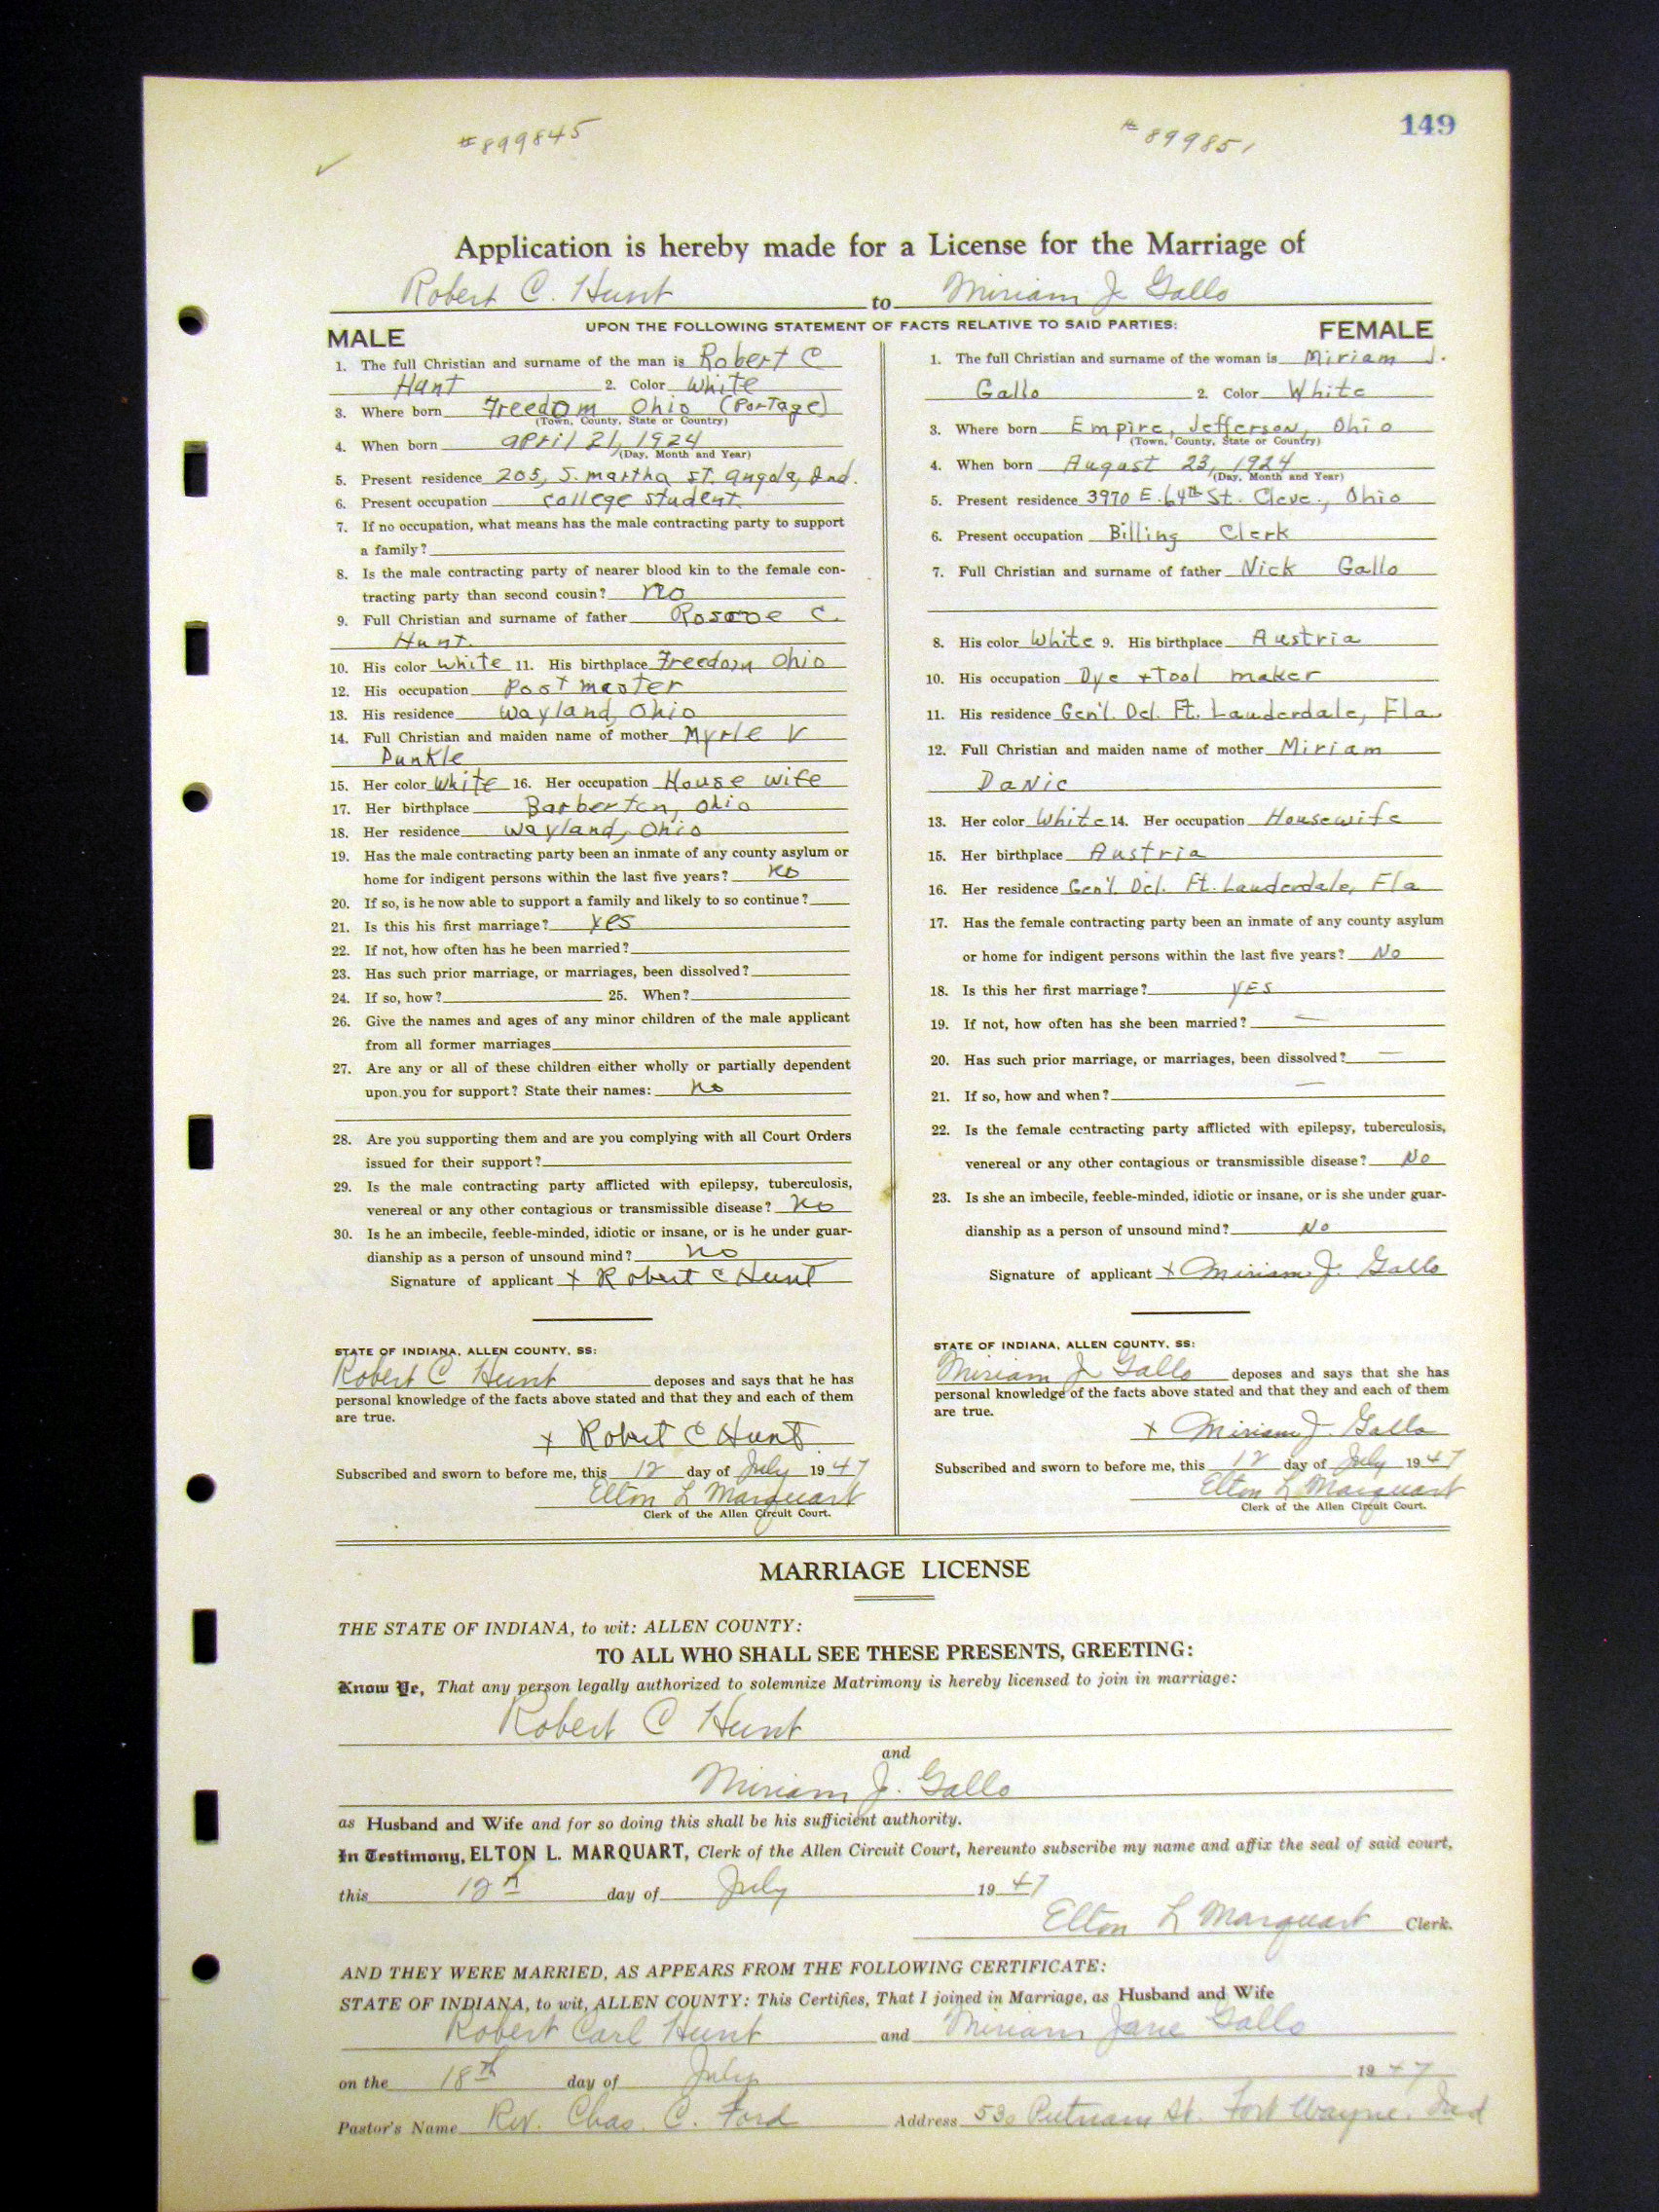 149
#899845
# 899851
Application is hereby made for a License for the Marriage of
Robert C. Hunt to Miriam J Gallo
UPON THE FOLLOWING STATEMENT OF FACTS RELATIVE TO SAID PARTIES:
MALE
1. The full Christian and surname of the man is Robert C
Hunt 2. Color White
3. Where born Freedom Ohio (Portage)
(Town, County, State or Country)
4. When born April 21, 1924
(Day, Month and Year)
5. Present residence 205, S. martha ST. Angola, Ind.
6. Present occupation college student
7. If no occupation, what means has the male contracting party to support
a family?
8. Is the male contracting party of nearer blood kin to the female con-
tracting party than second cousin? no
9. Full Christian and surname of father Roscoe C.
Hunt.
10. His color White 11. His birthplace Freedom Ohio
12. His occupation Post master
13. His residence Wayland, Ohio
14. Full Christian and maiden name of mother Myrle V
Dunkle
15. Her color White 16. Her occupation House wife
17. Her birthplace Barberton, Ohio
18. Her residence Wayland, Ohio
19. Has the male contracting party been an inmate of any county asylum or
home for indigent persons within the last five years? no
20. If so, is he now able to support a family and likely to so continue?
21. Is this his first marriage? yes
22. If not, how often has he been married?
23. Has such prior marriage, or marriages, been dissolved?
24. If so, how? 25. When?
26. Give the names and ages of any minor children of the male applicant
from all former marriages
27. Are any or all of these children either wholly or partially dependent
upon you for support? State their names: no
28. Are you supporting them and are you complying with all Court Orders
issued for their support?
29. Is the male contracting party afflicted with epilepsy, tuberculosis,
venereal or any other contagious or transmissible disease? no
30. Is he an imbecile, feeble-minded, idiotic or insane, or is he under guar-
dianship as a person of unsound mind? no
Signature of applicant x Robert C Hunt
STATE OF INDIANA, ALLEN COUNTY, SS:
Robert C Hunt deposes and says that he has
personal knowledge of the facts above stated and that they and each of them
are true.
x Robert C Hunt
Subscribed and sworn to before me, this 12 day of July 1947
Elton L Marquart
Clerk of the Allen Circuit Court.
FEMALE
1. The full Christian and surname of the woman is Miriam J.
Gallo 2. Color White
3. Where born Empire, Jefferson, Ohio
(Town, County, State or Country)
4. When born August 23, 1924
(Day, Month and Year)
5. Present residence 3970 E. 64th St. Cleve., Ohio
6. Present occupation Billing Clerk
7. Full Christian and surname of father Nick Gallo
8. His color White 9. His birthplace Austria
10. His occupation Dye + Tool maker
11. His residence Gen'l. Del. Ft. Lauderdale, Fla.
12. Full Christian and maiden name of mother Miriam
DaNic
13. Her color White 14. Her occupation Housewife
15. Her birthplace Austria
16. Her residence Gen'l Del. Ft. Lauderdale, Fla
17. Has the female contracting party been an inmate of any county asylum
or home for indigent persons within the last five years? No
18. Is this her first marriage? yes
19. If not, how often has she been married? —
20. Has such prior marriage, or marriages, been dissolved? —
21. If so, how and when? —
22. Is the female contracting party afflicted with epilepsy, tuberculosis,
venereal or any other contagious or transmissible disease? No
23. Is she an imbecile, feeble-minded, idiotic or insane, or is she under guar-
dianship as a person of unsound mind? No
Signature of applicant x Miriam J. Gallo
STATE OF INDIANA, ALLEN COUNTY, SS:
Miriam J Gallo deposes and says that she has
personal knowledge of the facts above stated and that they and each of them
are true.
x Miriam J. Gallo
Subscribed and sworn to before me, this 12 day of July 1947
Elton L Marquart
Clerk of the Allen Circuit Court.
MARRIAGE LICENSE
THE STATE OF INDIANA, to wit: ALLEN COUNTY:
TO ALL WHO SHALL SEE THESE PRESENTS, GREETING:
Know Ye, That any person legally authorized to solemnize Matrimony is hereby licensed to join in marriage:
Robert C Hunt
and
Miriam J. Gallo
as Husband and Wife and for so doing this shall be his sufficient authority.
In Testimony, ELTON L. MARQUART, Clerk of the Allen Circuit Court, hereunto subscribe my name and affix the seal of said court,
this 12th day of July 1947
Elton L Marquart Clerk.
AND THEY WERE MARRIED, AS APPEARS FROM THE FOLLOWING CERTIFICATE:
STATE OF INDIANA, to wit, ALLEN COUNTY: This Certifies, That I joined in Marriage, as Husband and Wife
Robert Carl Hunt and Miriam Jane Gallo
on the 18th day of July 1947
Pastor's Name Rev. Chas. C. Ford Address 530 Putnam St. Fort Wayne, Ind